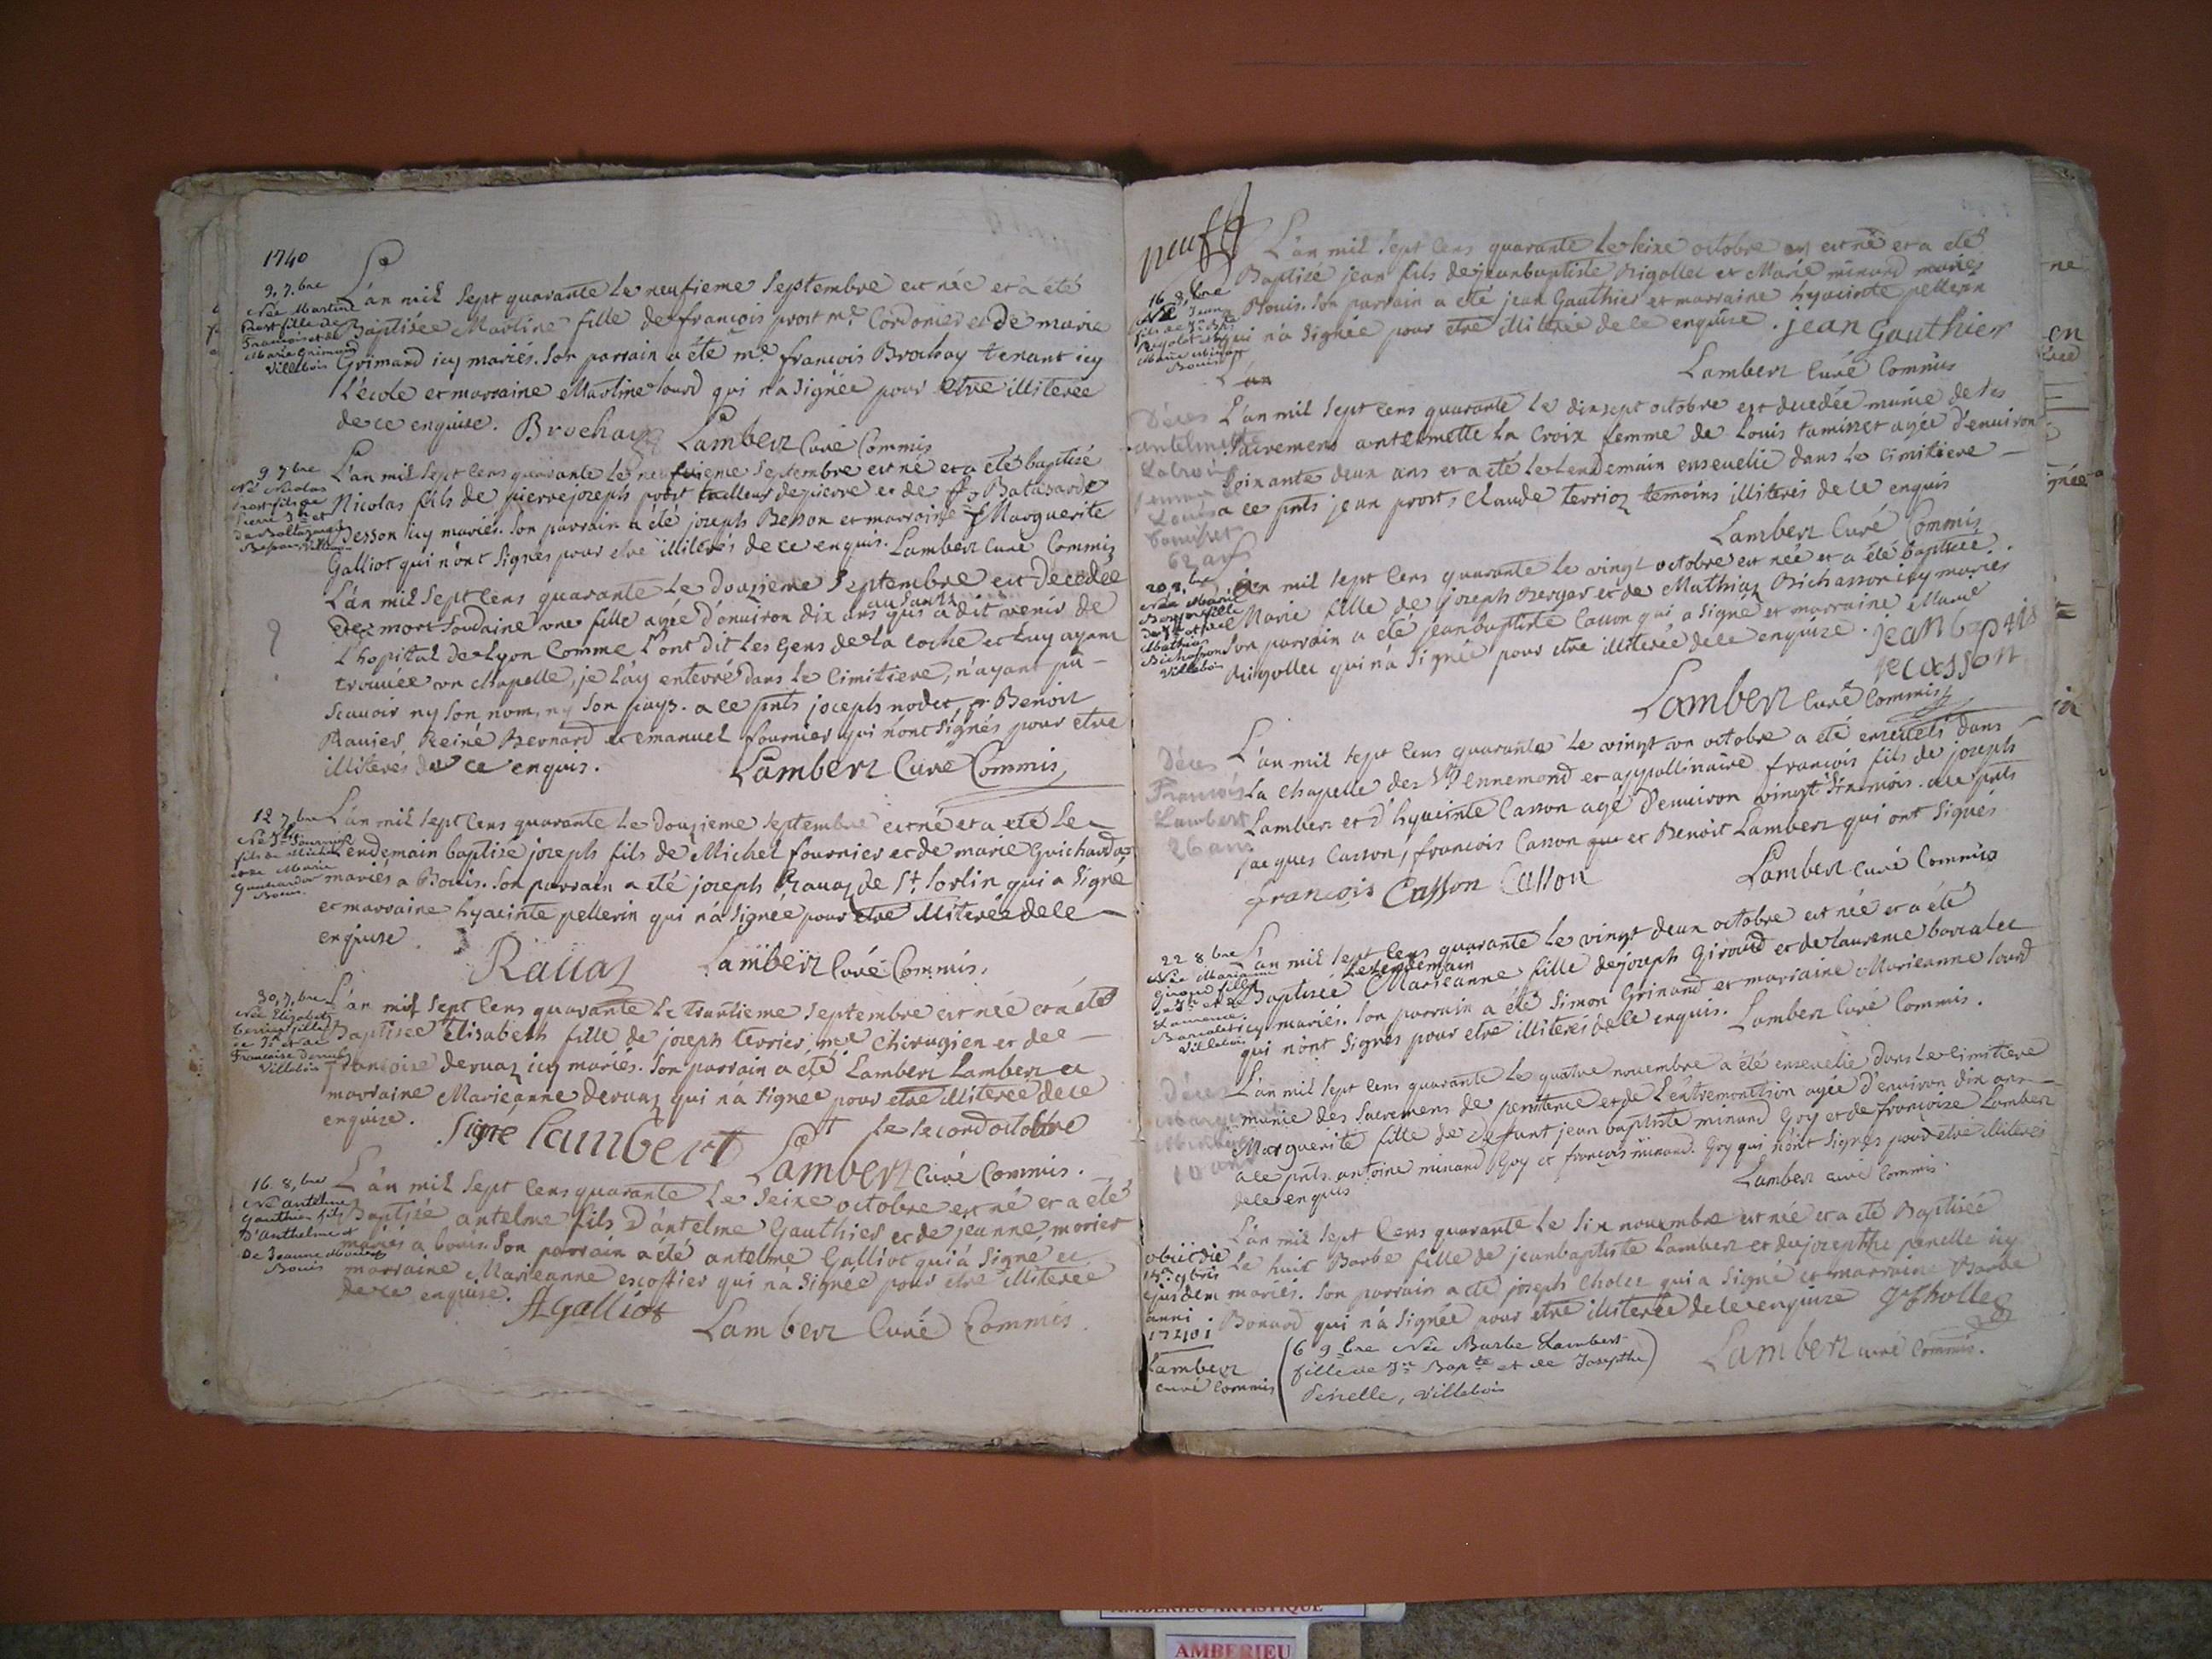 1740
9, 7.bre
Née Martine
Prost fille de
François et de
Marie Grimand
Villebois
L'an mil sept quarante le neufieme septembre est née et a été
Baptisée Martine fille de françois prost me. Cordonier et de marie
Grimand icy mariés. son parrain a été me. françois Brochay tenant icy
L'école et marraine Martine sourd qui n'a signée pour etre illiterée
de ce enquise. Brochay Lamberz Curé Commis
9 7bre
Né Nicolas
Prost fils de
Pierre Jh et
de Baltazarde
Besson Villebois
L'an mil sept cens quarante le neufvieme septembre est né et a été baptisé
Nicolas fils de pierre joseph prost tailleur de pierre et de Batasarde
Besson icy mariés. son parrain a été joseph Besson et marraine Marguerite
Galliot qui n'ont signés pour etre illiterés de ce enquis. Lamberz Curé Commis
?
L'an mil sept cens quarante le douzieme septembre est decedée
de mort soudaine une fille agée d'environ dix ans qui a dit venir de
L'hopital de Lyon Comme l'ont dit les gens de la coche et luy ayant
trouvée un chapelle, je l'ay enterré dans le Cimitiere, n'ayant pû
scavoir ny son nom, ny son pays. a ce pnts joseph nodet, Benoit
Ravier Reiné Bernard et emanuel fournier qui n'ont signés pour etre
illiterés de ce enquis. Lamberz Curé Commis
12 7bre
Né Jh fournier
fils de Michel
et de Marie
Guichardon
Bouis
L'an mil sept cens quarante le douzieme septembre est né et a eté le
lendemain baptisé joseph fils de Michel fournier et de marie Guichardon
mariés a Bouis. son parrain a eté joseph Ravaz de St. Sorlin qui a signé
et marraine hyacinte pellerin qui n'a signée pour etre illiterée de ce
enquise. Rauaz Lamberz Curé Commis.
30, 7.bre
Née Elizabeth
Terrier fille
de Jh et de
Françoise Dervaz
Villebois
L'an mil sept cens quarante le trantieme septembre est née et a été
Baptisée Elisabeth fille de joseph terrier, me Chirugien et de
françoise dervaz icy mariés. son parrain a été Lamberz Lamberz et
marraine Marieanne dervaz qui n'a signée pour etre illiterée de ce
enquize. signé Lambert le second octobre
Lamberz Curé Commis.
16. 8,bre
Né antelme
Gauthier fils
D'anthelme et
De Jeanne Morier
Bouis
L'an mil sept cens quarante le seize octobre est né et a été
Baptisé antelme fils d'antelme Gauthier et de jeanne morier
mariés a bouis. son parrain a été antelme Galliot qui a signé et
marraine Marieanne escoffier qui n'a signée pour etre illiterée
de ce enquise. AGalliot
Lamberz Curé Commis
neuf
16 8,bre
Né Jean
fils de Jn Bte
Rigolet et de
Marie Minand
Bouis
L'an mil sept cens quarante le seize octobre est né et a été
Baptisé jean fils de jeanbaptiste Rigollet et Marie minand mariés
a Bouis. son parrain a eté jean Gauthier et marraine hyacinte pellerin
qui n'a signée pour etre illiterée de ce enquise. jean Gauthier
Lamberz Curé Commis
L'an
Décès
antelmette
Lacroix
femme de
Louis
tamisset
62 ans
L'an mil sept cens quarante le dix sept octobre est decedée munie de ses
sacremens antelmette La Croix femme de Louis tamisset agée d'environ
soixante deux ans et a été le lendemain ensevelie dans le cimitiere
a ce pnts jean prost, Claude terrioz temoins illiterés de ce enquis
Lamberz Curé Commis
20 8.bre
Née Marie
Berger fille
de Jh et de
Mathias
Bichasson
Villebois
L'an mil sept cens quarante le vingt octobre est née et a été baptisée
Marie fille de joseph Berger et de Mathiaz Bichasson icy mariés
son parrain a été jeanbaptiste Casson qui a signé et marraine Marie
Rigollet qui n'a signée pour etre illiterée de ce enquize. jean baptis
jecasson
Lamberz Curé Commis
Décès
François
Lambert
26 ans
L'an mil sept cens quarante le vingt un octobre a été enseveli dans
la Chapelle des Sts. ennemond et appollinaire françois fils de joseph
Lamberz et d'hyacinte Casson agé d'environ vingt six mois. a ce pnts
jacques Casson, françois Casson et Benoit Lamberz qui ont signés
françois Casson Casson Lamberz Curé Commis
22 8bre
Née Marianne
Giroud fille
de Jh et de
Laurence
Barcalet
Villebois
L'an mil sept cens quarante le vingt deux octobre est née et a été
le lendemain
Baptisée Marieanne fille de joseph Giroud et de laurence barcalet
icy mariés. son parrain a été simon Grinand et marraine Marieanne sourd
qui n'ont signés pour etre illiterés de ce enquis. Lamberz Curé Commis.
Décès
Marguerite
Minand
10 ans
L'an mil sept cens quarante le quatre novembre a été ensevelie dans le cimitiere
munie des sacremens de penitence et de l'extremonction agée d'environ dix ans
Marguerite fille de defunt jean baptiste minand Goy et de françoise Lamberz
a ce pnts antoine minand Goy et françois minand. Goy qui n'ont signés pour etre illiterés
de ce enquis Lamberz curé Commis
obiit die
9bris
ejusdem
anni
1740
Lamberz
curé Commis
L'an mil sept cens quarante le six novembre est née et a été Baptisée
le huit Barbe fille de jeanbaptiste Lamberz et de josepthe penelle icy
mariés. son parrain a eté joseph Cholet qui a signé et marraine Barbe
Bonard qui n'a signée pour etre illiterée de ce enquize J Chollet
Lamberz curé Commis.
(6 9bre Née Barbe Lambert
fille de Jn Bapte et de Josepthe)
Penelle, Villebois
AMBERIEU ARTISTIQUE
AMBERIEU